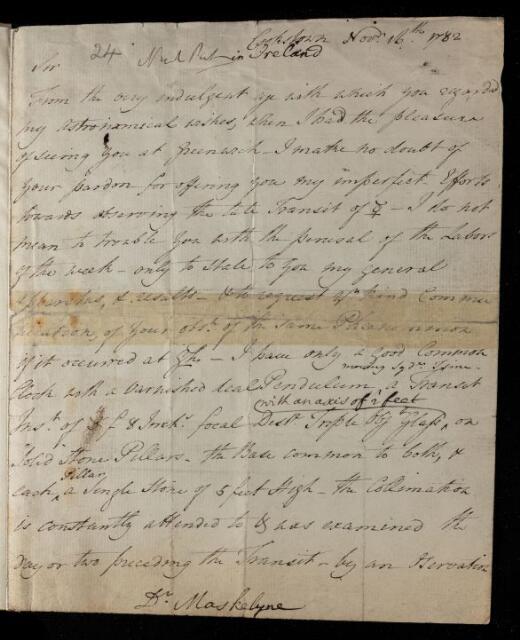 Cookstown Novr. 16th 1782
24 in Ireland
Sir
From the very indulgent with which you regarded
my astronomical wishes, when I had the pleasure
of seeing you at Greenwich - I make no doubt of
your pardon for offering you my imperfect Efforts
towards observing the late Transit of ☿ - I do not
mean to trouble you with the perusal of the Labors
of the week - only to state to you my general
& results - & to request yr. kind Commu
nication, of your obsn. of the same
of it occurred at - I have only a good Common
moving
Clock with a varnished deal Pendulum, a Transit
with an axis of 2 feet
Inst. of & 8 Inchs. focal Distce. Triple Obj Glass, on
Solid Stone Pillars - the Base common to both, &
Pillar
each, a Single Stone of 5 feet High - the Collimation
is constantly attended to & was examined the
day or two preceding the Transit - by an
Dr. Maskelyne